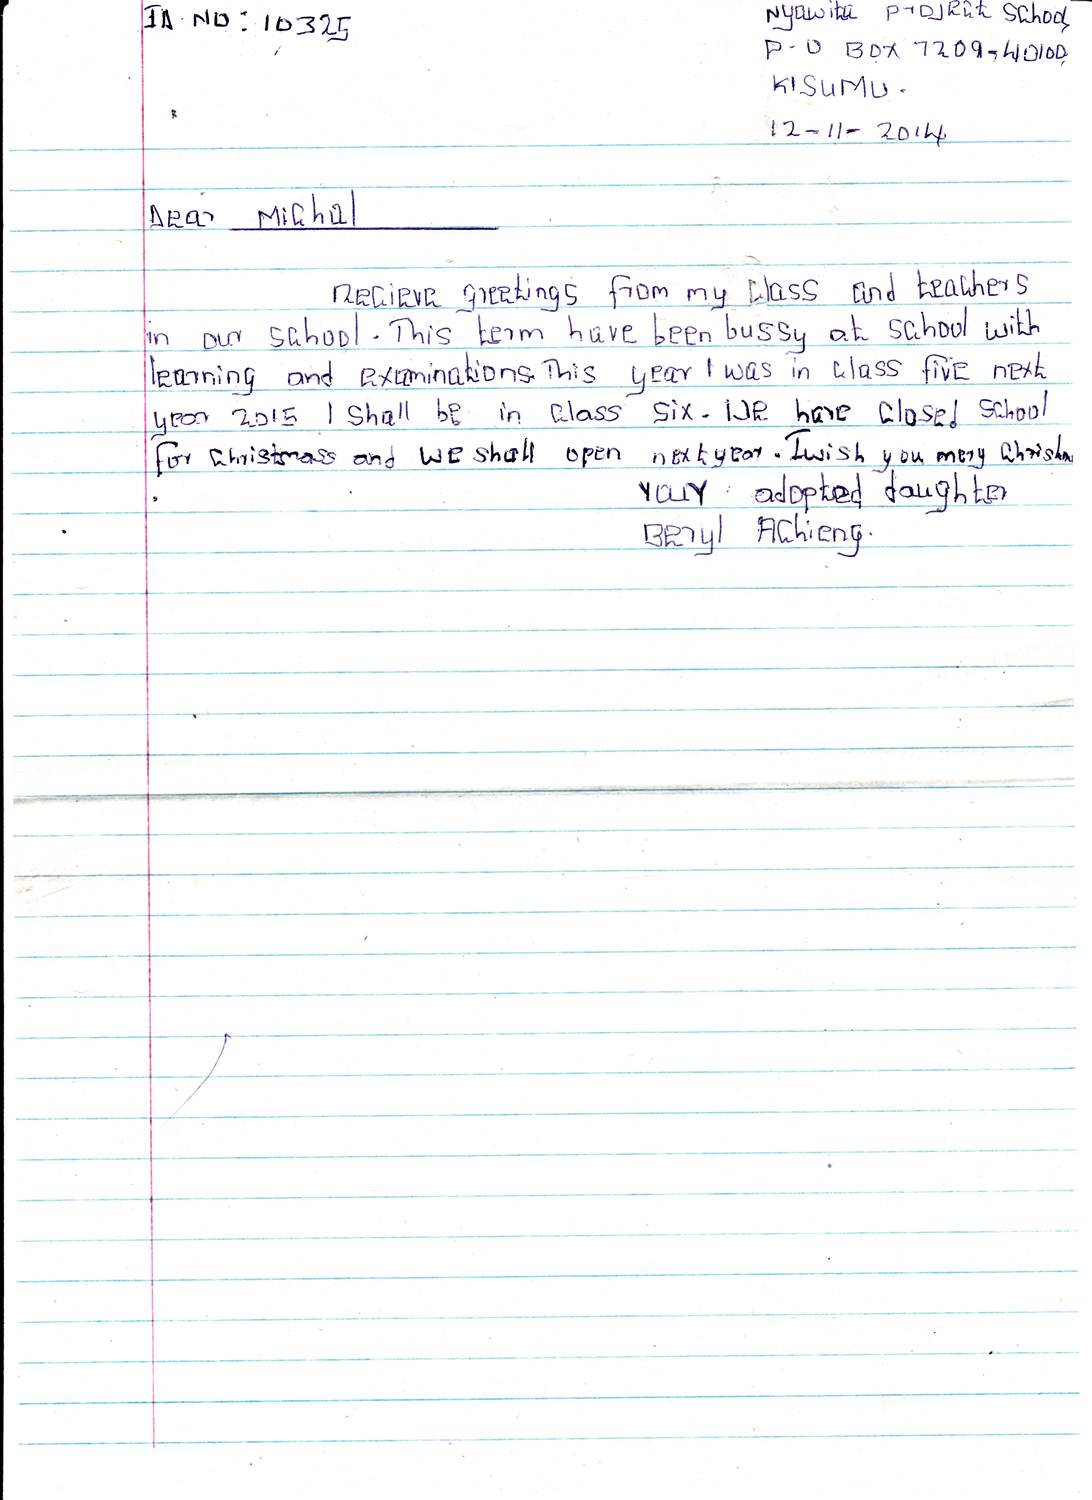 ID. NO: 10325
Nyawita Project School
P.O BOX 7209-40100
KISUMU.
12-11-2014
Dear Michal
Recieve greetings from my class and teachers
in our school. This term have been bussy at school with
learning and examinations. This year I was in class five next
year 2015 I shall be in class six. We have closed school
for christmass and we shall open next year. I wish you mery Christm
your adopted daughter
Beryl Achieng.